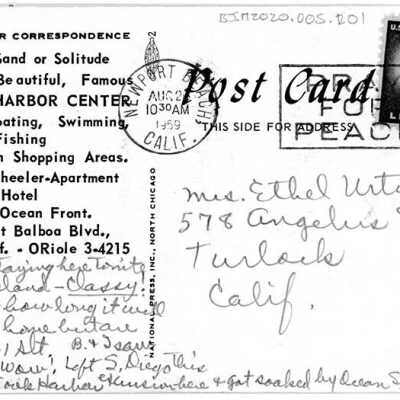 BJM2020.005.201
R CORRESPONDENCE
Sand or Solitude
Beautiful, Famous
HARBOR CENTER
oating, Swimming,
Fishing
n Shopping Areas.
heeler-Apartment
Hotel
Ocean Front.
t Balboa Blvd.,
f. - ORiole 3-4215
NATIONAL PRESS, INC., NORTH CHICAGO
Post Card
THIS SIDE FOR ADDRESS
NEWPORT BEACH,
AUG 2
10 30 AM
1959
CALIF.
FOR
PEACE
U.S.
Mrs. Ethel
578 Angelus
Turlock
Calif.
staying here tonite
Island - Classy!
how long it will
hope
B. &
Left S. Diego this
Harbor & got soaked by Ocean S